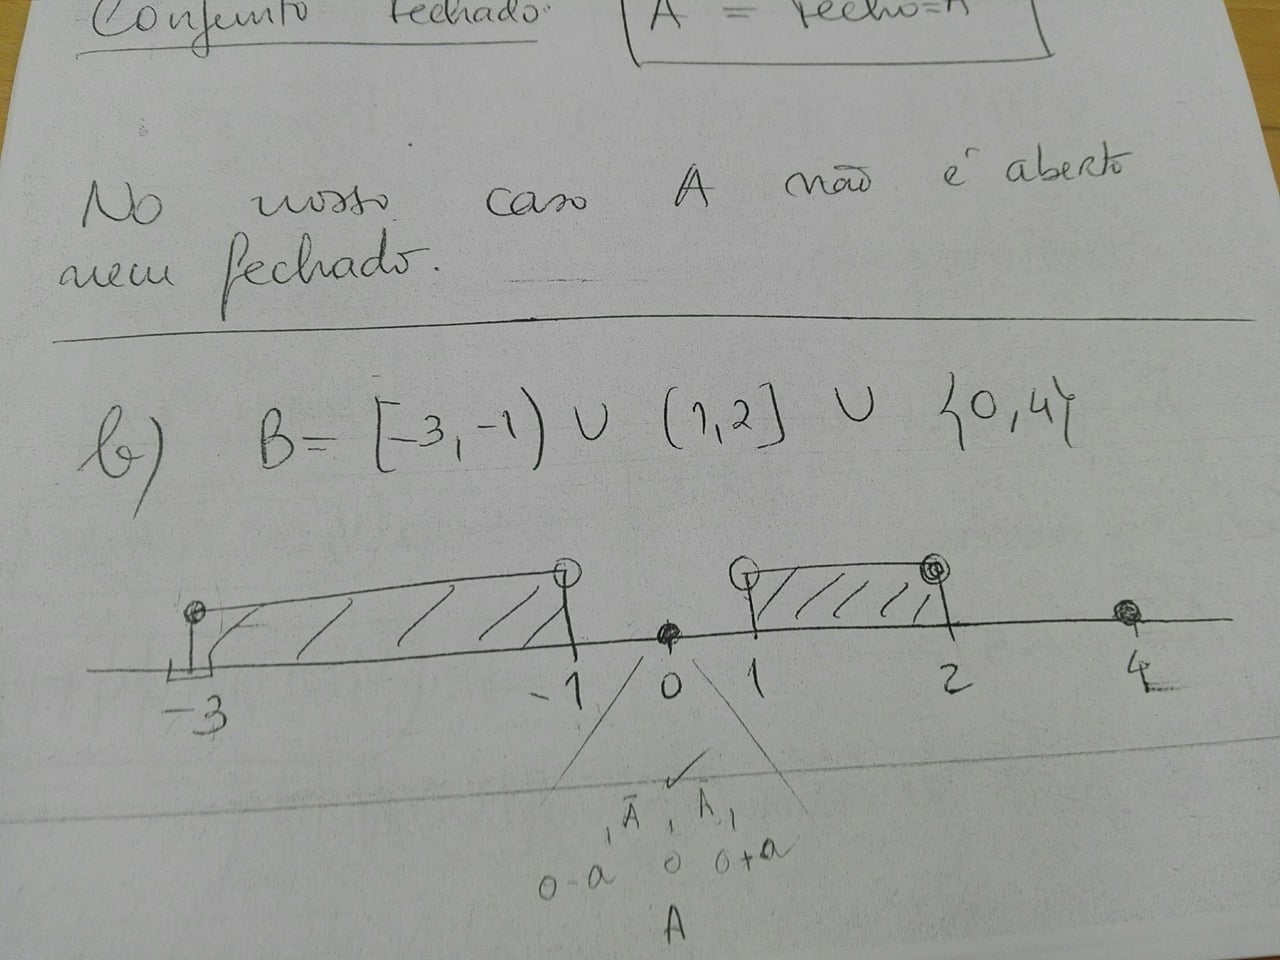 Conjunto fechado.
A = fecho=A
No nosso caso A não é aberto
nem fechado.
b) B= [-3,-1) ∪ (1,2] ∪ {0,4}
-3 -1 0 1 2 4
Ā Ā
0-a 0 0+a
A